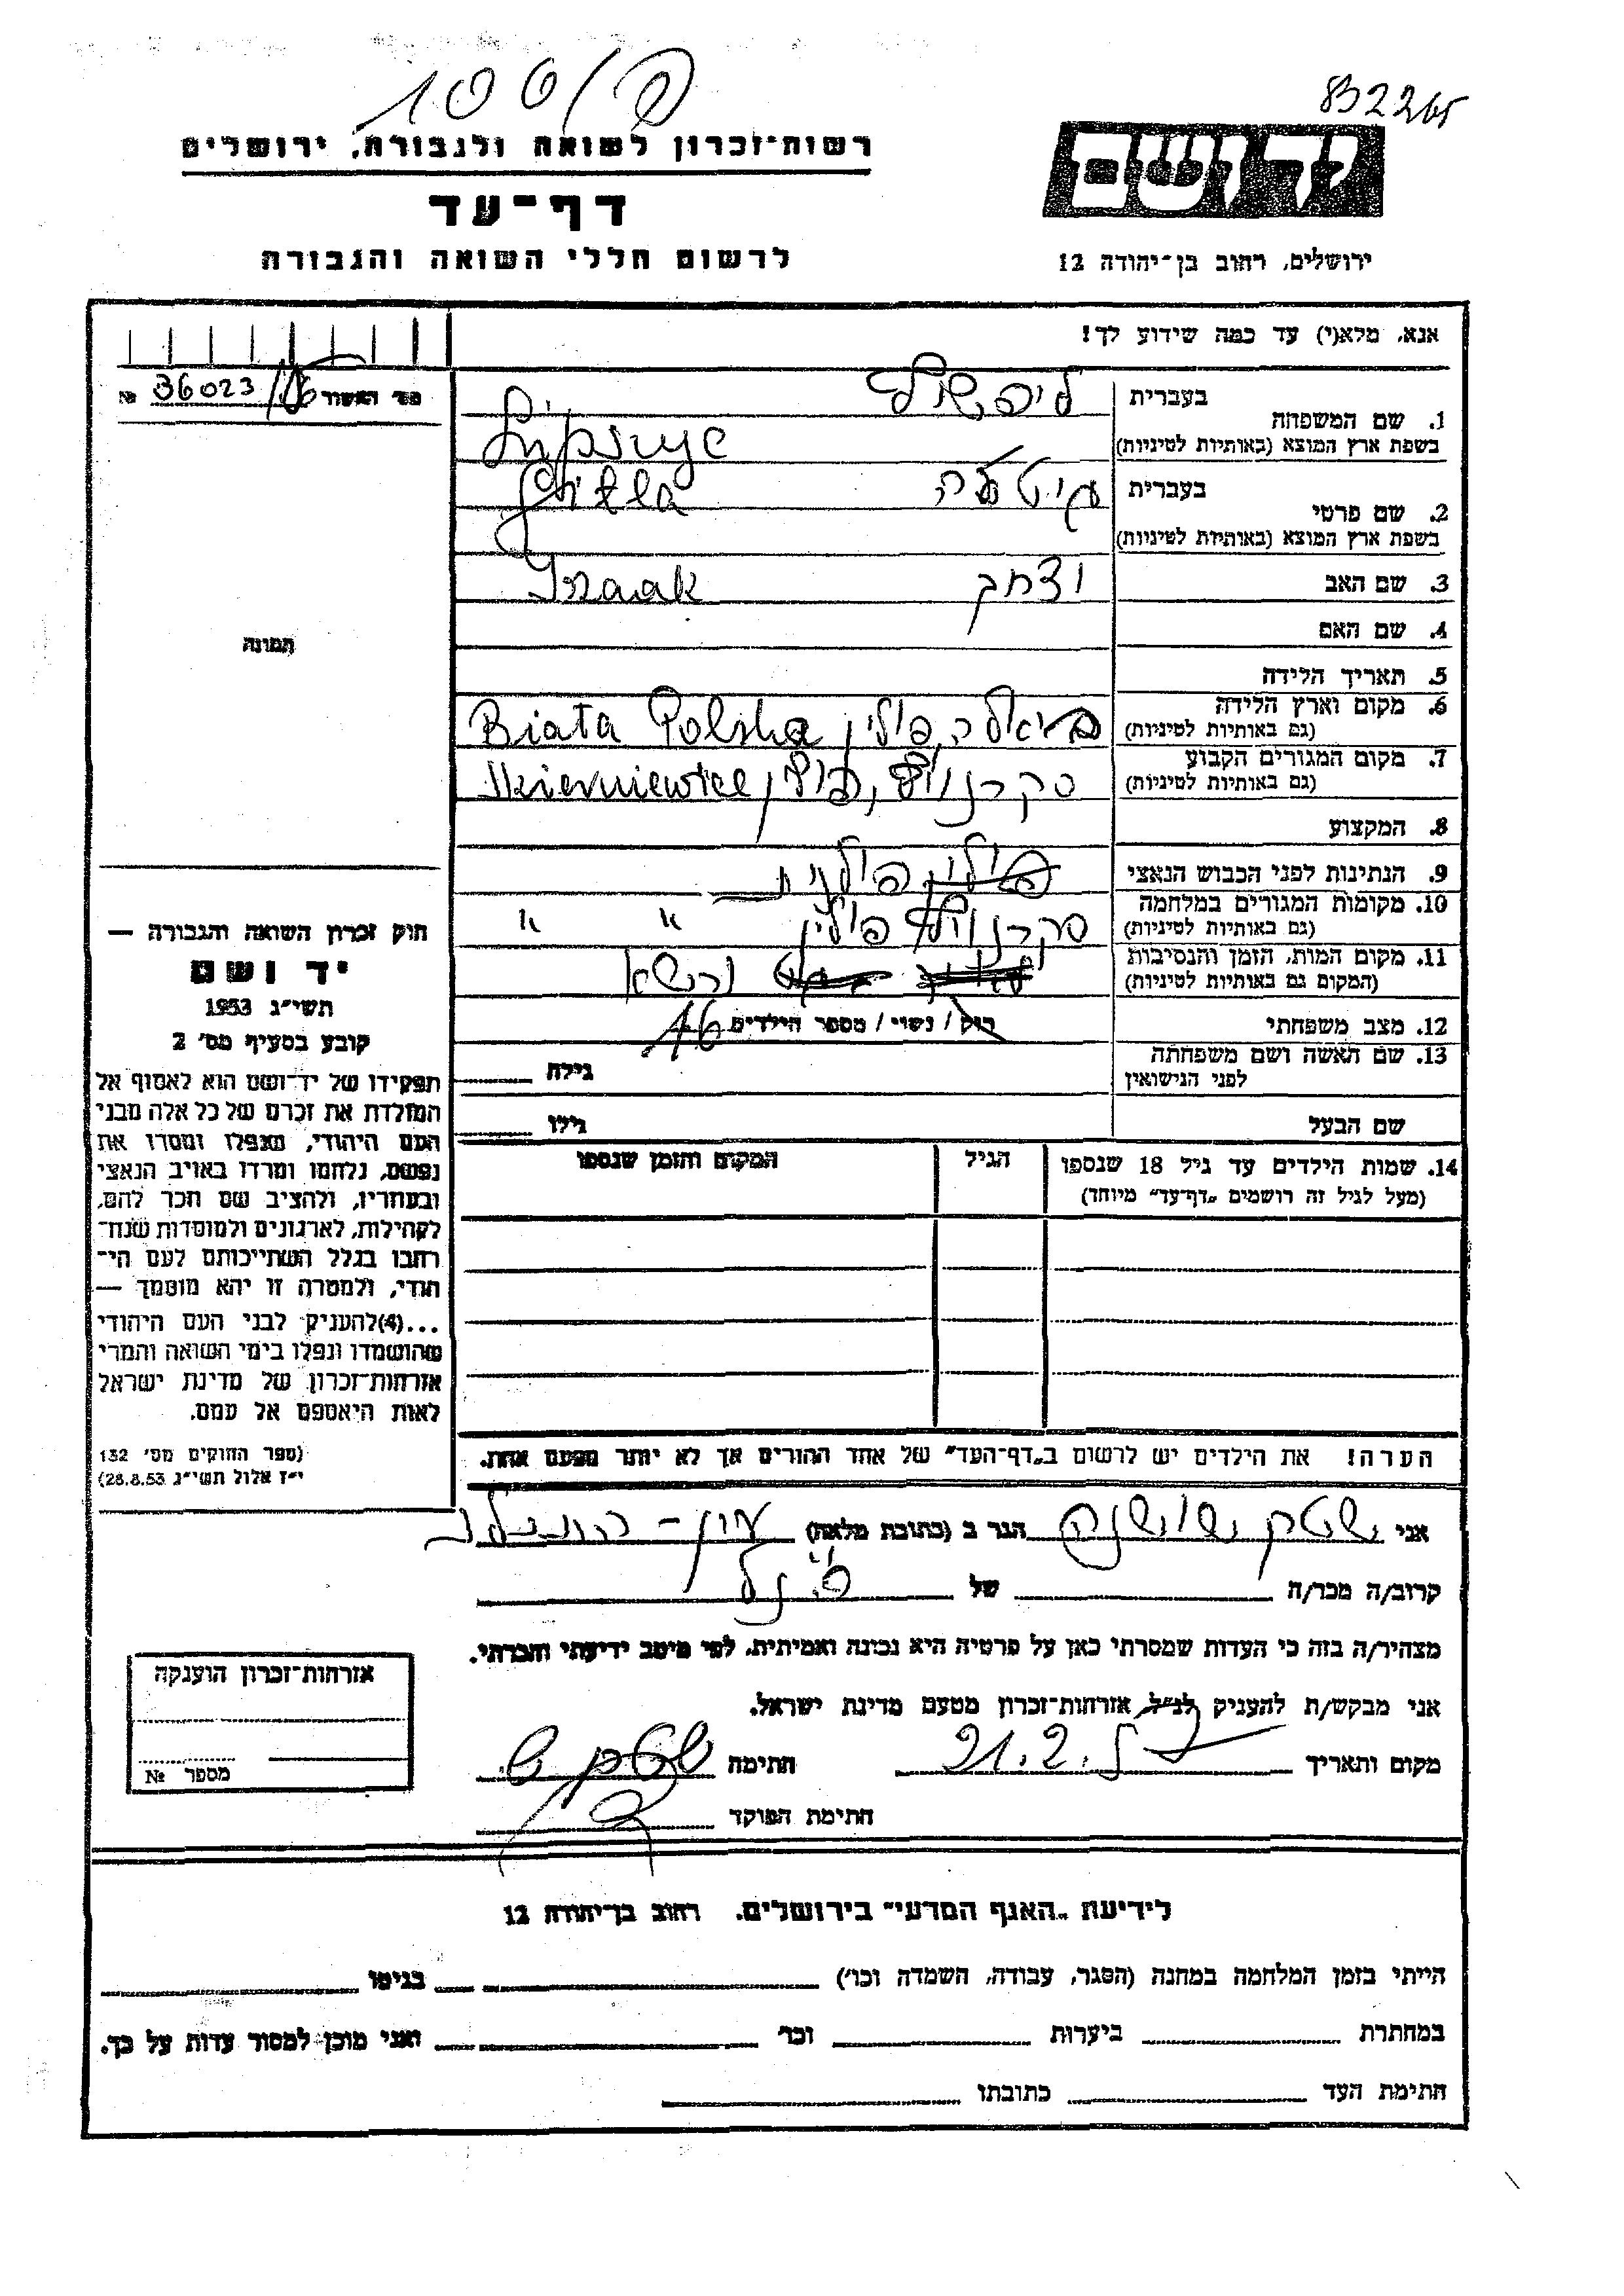 832265
רשות־זכרון לשואה ולגבורה, ירושלים
דף־עד
לרשום חללי השואה והגבורה
יד ושם
ירושלים, רחוב בן־יהודה 12
אנא, מלא(י) עד כמה שידוע לך!
מס׳ האשור № 36023/
1. שם המשפחה
בעברית
ליפשיץ
בשפת ארץ המוצא (באותיות לטיניות)
2. שם פרטי
בעברית
גיטלה
Gitla
בשפת ארץ המוצא (באותיות לטיניות)
3. שם האב
יצחק Izaak
4. שם האם
5. תאריך הלידה
6. מקום וארץ הלידה
(גם באותיות לטיניות)
ביאלה, פולין Biała Polska
7. מקום המגורים הקבוע
(גם באותיות לטיניות)
סקרנוויץ, פולין Skierniewice
8. המקצוע
9. הנתינות לפני הכבוש הנאצי
פולנית
10. מקומות המגורים במלחמה
(גם באותיות לטיניות)
סקרנוויץ פולין " "
11. מקום המות, הזמן והנסיבות
(המקום גם באותיות לטיניות)
ורשא
12. מצב משפחתי
רווק / נשוי / מספר הילדים
13. שם האשה ושם משפחתה
לפני הנישואין
גילה
שם הבעל
גילו
14. שמות הילדים עד גיל 18 שנספו
(מעל לגיל זה רושמים „דף־עד״ מיוחד)
הגיל
המקום והזמן שנספו
הערה! את הילדים יש לרשום ב„דף־העד״ של אחד ההורים אך לא יותר מפעם אחת.
תמונה
חוק זכרון השואה והגבורה —
יד ושם
תשי״ג 1953
קובע בסעיף מס׳ 2
תפקידו של יד־ושם הוא לאסוף אל
המולדת את זכרם של כל אלה מבני
העם היהודי, שנפלו ומסרו את
נפשם, נלחמו ומרדו באויב הנאצי
ובעוזריו, ולהציב שם וזכר להם,
לקהילות, לארגונים ולמוסדות שנח־
רבו בגלל השתייכותם לעם הי־
הודי, ולמטרה זו יהא מוסמך —
...(4) להעניק לבני העם היהודי
שהושמדו ונפלו בימי השואה והמרי
אזרחות־זכרון של מדינת ישראל
לאות היאספם אל עמם.
(ספר החוקים מס׳ 132
י״ז אלול תשי״ג 28.8.53)
אני שושנה הגר ב (כתובת מלאה)
קרוב/ה מכר/ה של
מצהיר/ה בזה כי העדות שמסרתי כאן על פרטיה היא נכונה ואמיתית, לפי מיטב ידיעתי והכרתי.
אני מבקש/ת להעניק לנ״ל אזרחות־זכרון מטעם מדינת ישראל.
מקום ותאריך חתימה
חתימת הפוקד
אזרחות־זכרון הוענקה
מספר №
לידיעת „האגף המדעי״ בירושלים, רחוב בן־יהודה 12
הייתי בזמן המלחמה במחנה (הסגר, עבודה, השמדה וכו׳) בגיטו
במחתרת ביערות וכו׳ ואני מוכן למסור עדות על כך.
חתימת העד כתובתו